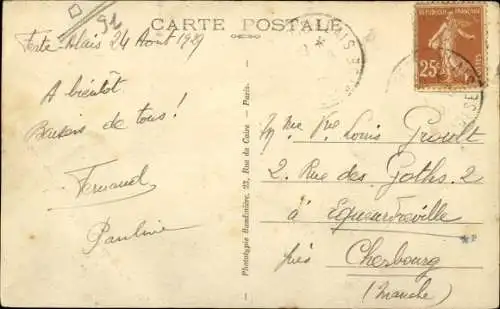 CARTE POSTALE
92
Ferté-Alais 24 Août 1929
A bientôt
Baisers de tous !
Fernand
Pauline
Phototypie Baudinière, 22, Rue du Caire - Paris.
REPUBLIQUE FRANÇAISE
25c
POSTES
Mme Vve Louis Groult
2. Rue des Goths. 2
à Equeurdreville
près Cherbourg
(Manche)